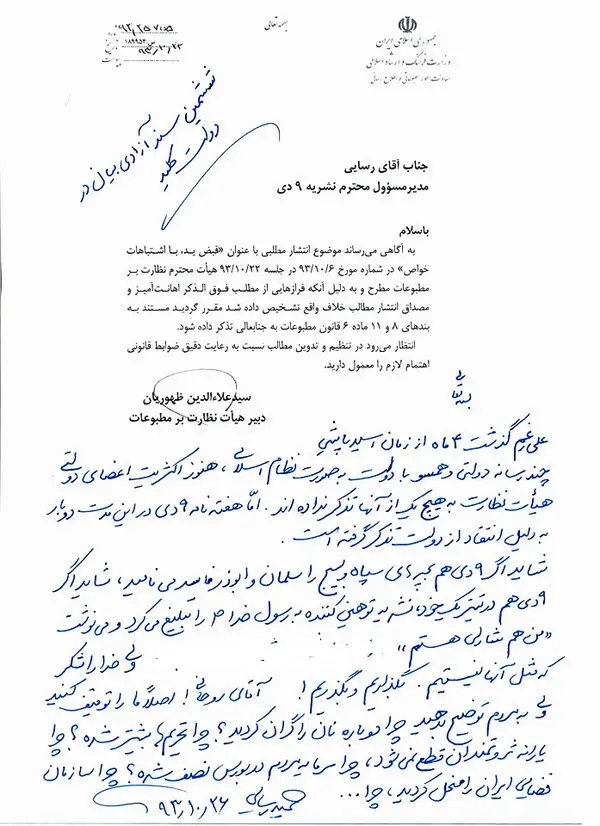 بسمه تعالی
جمهوری اسلامی ایران
وزارت فرهنگ و ارشاد اسلامی
معاونت امور مطبوعاتی و اطلاع رسانی
تاریخ
پیوست
ششمین سند آزادی بیان در
دولت کلید
جناب آقای رسایی
مدیرمسؤول محترم نشریه ۹ دی
باسلام
به آگاهی می‌رساند موضوع انتشار مطلبی با عنوان «قبض ید، با اشتباهات
خواص» در شماره مورخ ۹۳/۱۰/۶ در جلسه ۹۳/۱۰/۲۲ هیأت محترم نظارت بر
مطبوعات مطرح و به دلیل آنکه فرازهایی از مطلب فوق الذکر اهانت‌آمیز و
مصداق انتشار مطالب خلاف واقع تشخیص داده شد مقرر گردید مستند به
بندهای ۸ و ۱۱ ماده ۶ قانون مطبوعات به جنابعالی تذکر داده شود.
انتظار می‌رود در تنظیم و تدوین مطالب نسبت به رعایت دقیق ضوابط قانونی
اهتمام لازم را معمول دارید.
سیدعلاءالدین ظهوریان
دبیر هیأت نظارت بر مطبوعات
بسمه تعالی
علی رغم گذشت ۴ ماه از زمان اسیدپاشی
چند رسانه دولتی و همسو با دولت به صورت نظام اسلامی، هنوز اکثریت اعضای دولتی
هیأت نظارت به هیچ یک از آنها تذکر نداده اند. امّا هفته نامه ۹ دی در این مدت دو بار
به دلیل انتقاد از دولت تذکر گرفته است.
شاید اگر ۹ دی هم بچه های سپاه و بسیج را سلمان و ابوذر فاسد می نامید، شاید اگر
۹ دی هم در تیتر یک خود، نشریه توهین کننده به رسول خدا ص را تبلیغ می کرد و می نوشت
«من هم شارلی هستم»
ولی خدا را شکر
که مثل آنها نیستیم. بگذاریم و بگذریم! آقای روحانی! اصلاً ما را توقیف کنید
ولی به مردم توضیح بدهید چرا دوباره نان را گران کردید؟ چرا تحریم ها بیشتر شده؟ چرا
یارانه ثروتمندان قطع نمی شود، چرا سرمایه مردم در بورس نصف شده؟ چرا سازمان
فضایی ایران را منحل کردید، چرا...
حمید رسایی ۹۳/۱۰/۲۶